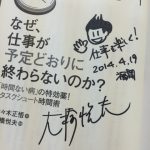 なぜ、
仕事が
予定どおりに
終わらないのか?
「時間ない病」の特効薬!
タスクシュート時間術
仕事を楽しく!
2014.4.19
大橋悦夫
佐々木正悟
大橋悦夫